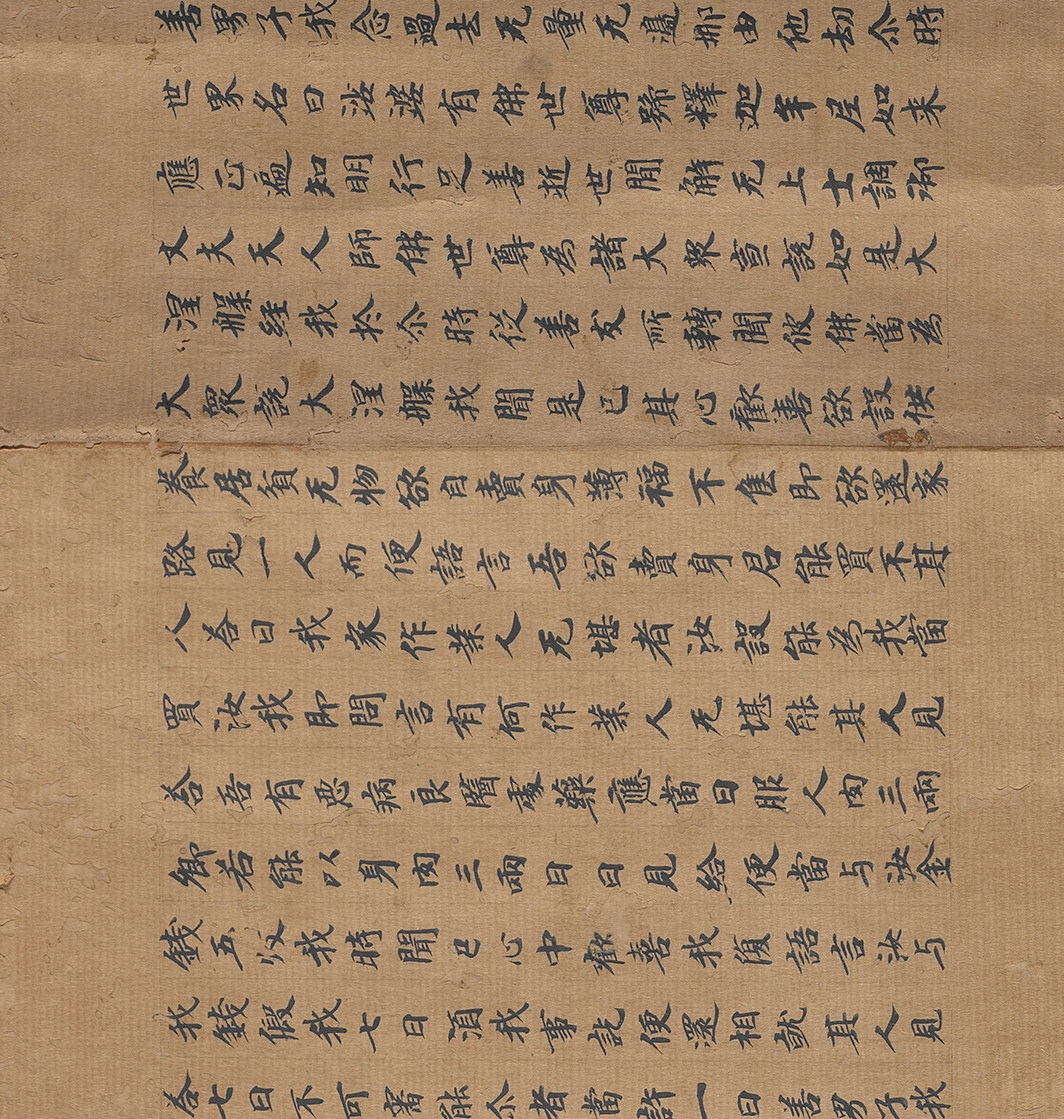 善男子我念過去无量无邊那由他劫尒時
世界名曰娑婆有佛世尊號釋迦牟尼如来
應正遍知明行足善逝世間解无上士調御
丈夫天人師佛世尊為諸大衆宣說如是大
涅槃經我於尒時從善友所轉聞彼佛當為
大衆說大涅槃我聞是已其心歡喜欲設供
養居貧无物欲自賣身薄福不售即欲還家
路見一人而便語言吾欲賣身君能買不其
人答曰我家作業人无堪者汝設能為我當
買汝我即問言有何作業人无堪能其人見
答吾有惡病良醫處藥應當日服人肉三兩
卿若能以身肉三兩日日見給便當与汝金
錢五枚我時聞已心中歡喜我復語言汝与
我錢假我七日須我事訖便還相就其人見
答七日不可審能尒者當許一日善男子我